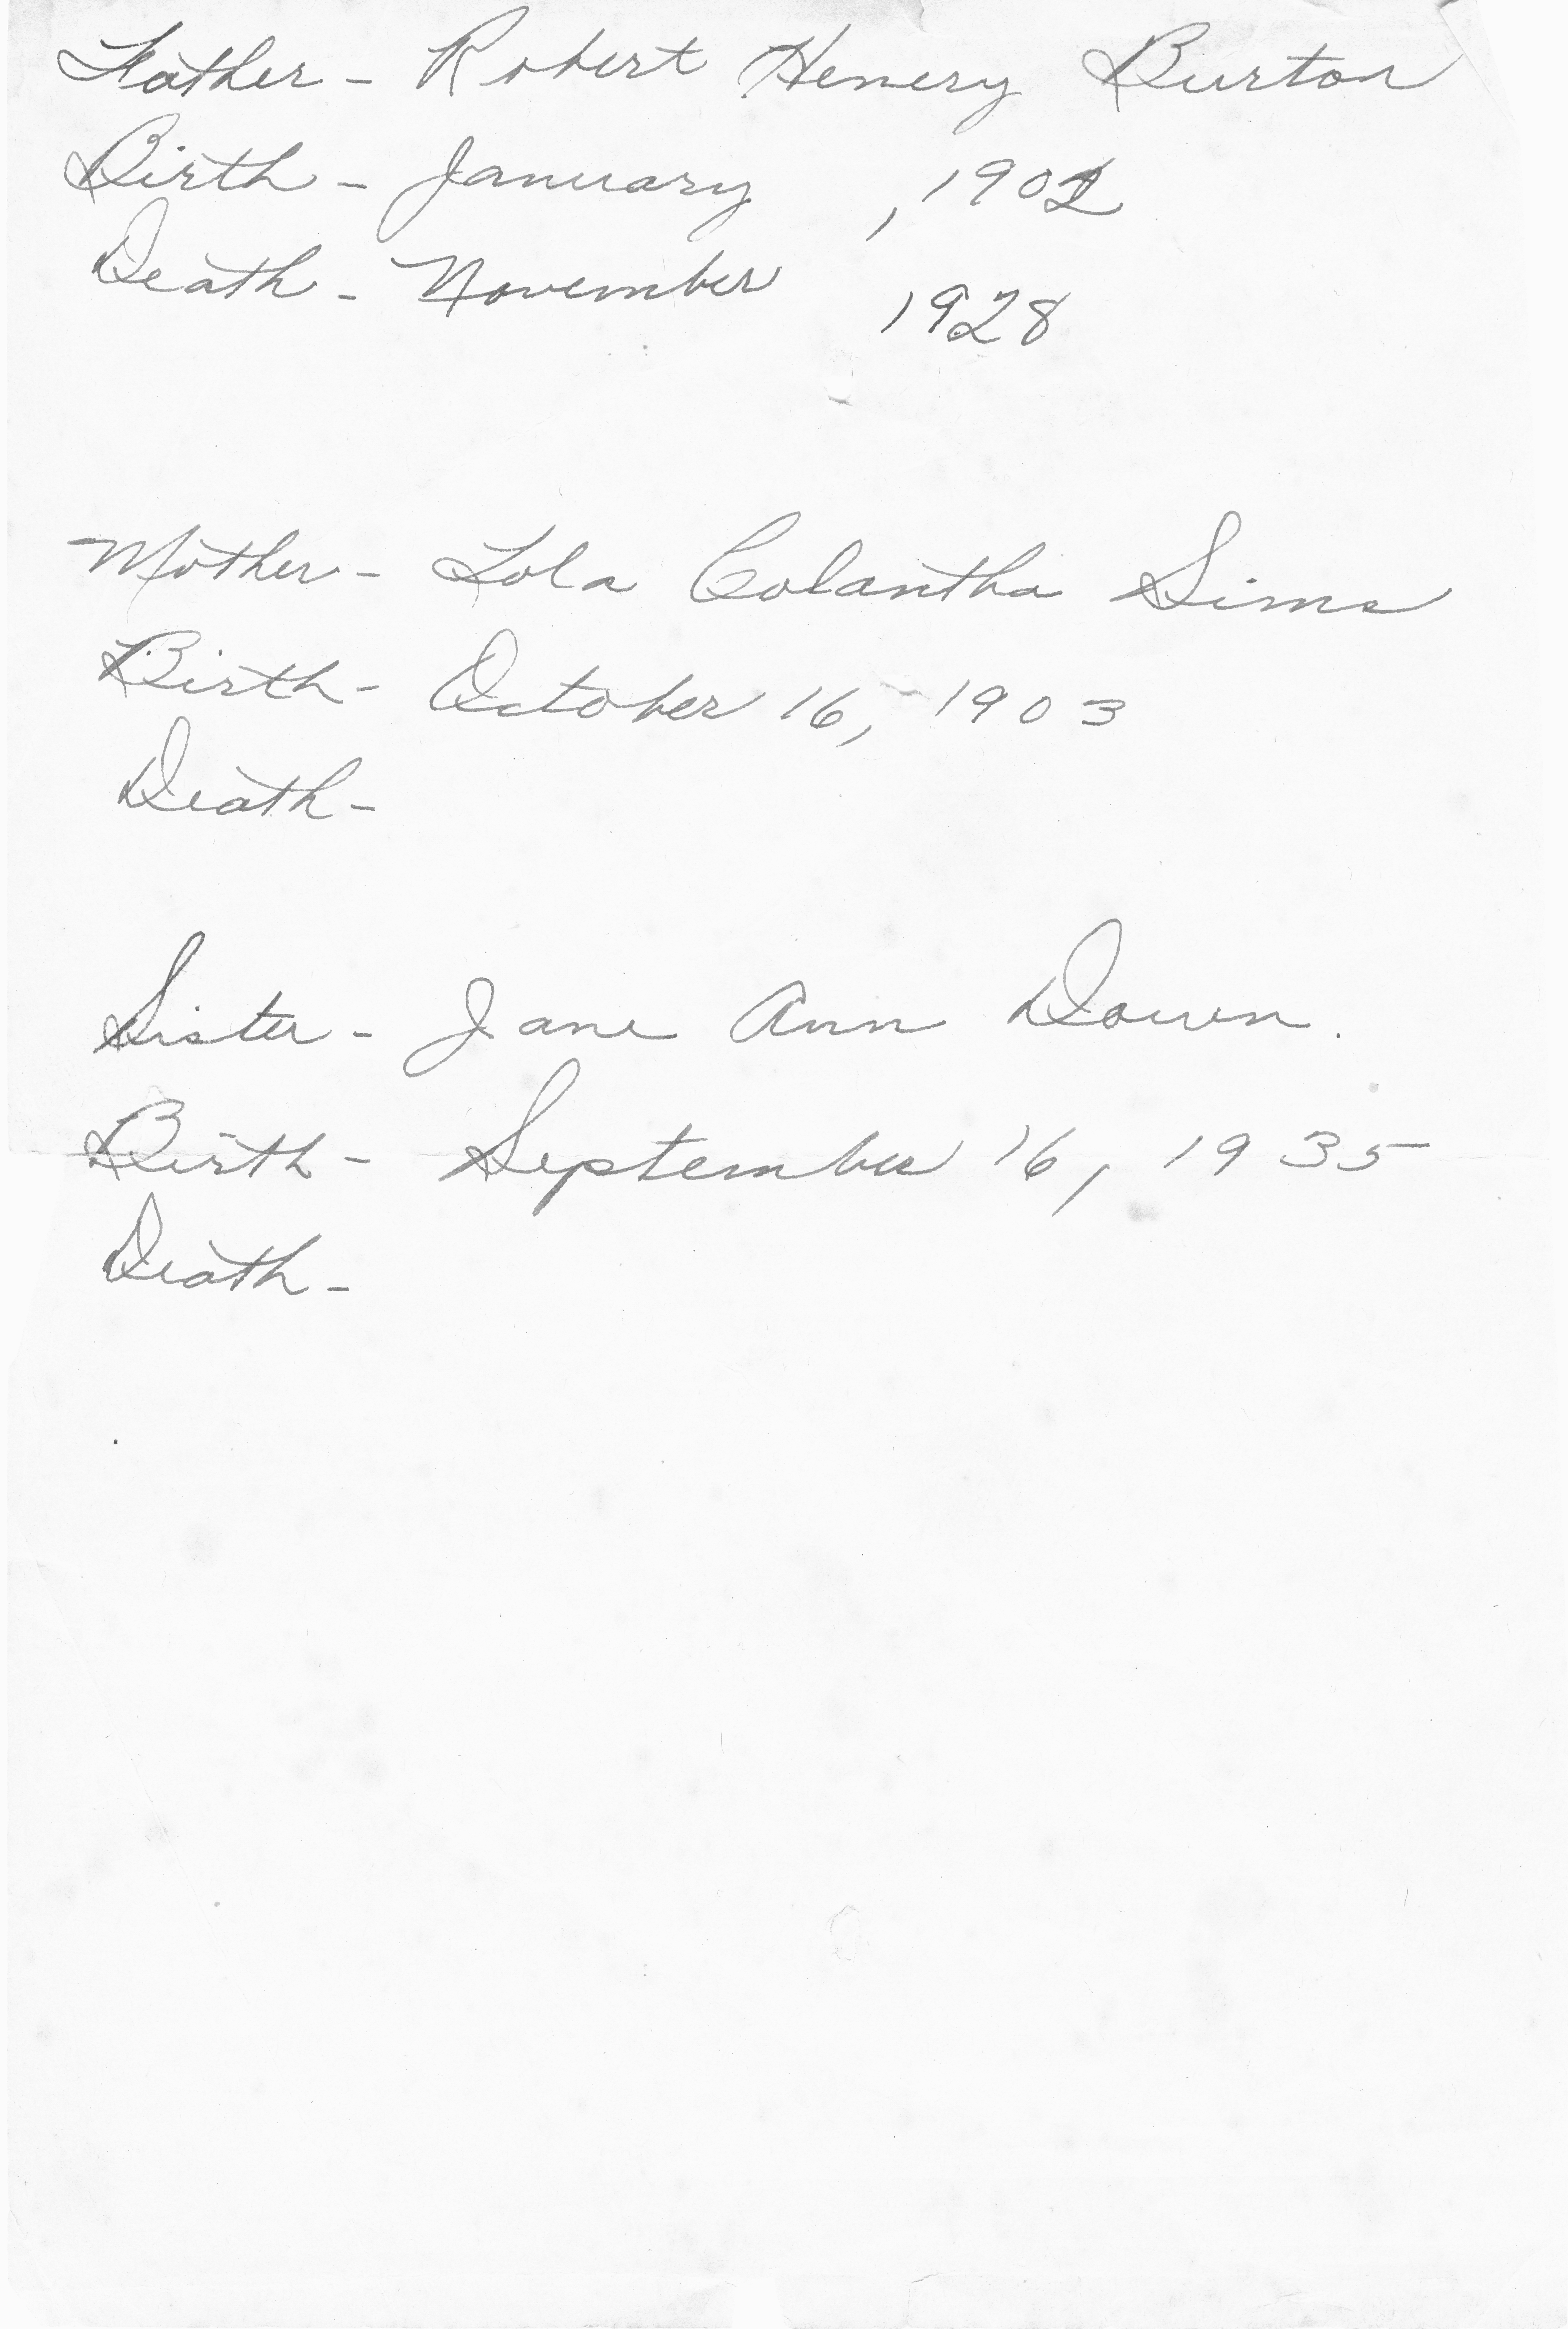 Father - Robert Henery Burton
Birth - January , 1902
Death - November 1928
Mother - Lola Colantha Sims
Birth - October 16, 1903
Death -
Sister - Jane Ann Dowen.
Birth - September 16, 1935
Death -